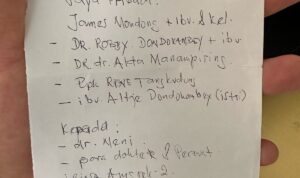 James Mondong + ibu & kel.
- DR. ROBBY DONDOKAMBEY + ibu
- DR. dr. Akta Manampiring
- RENE Tangkudung
- ibu Altje Dondokambey (istri)
Kepada :
- dr. Meni
- para dokter & Perawat